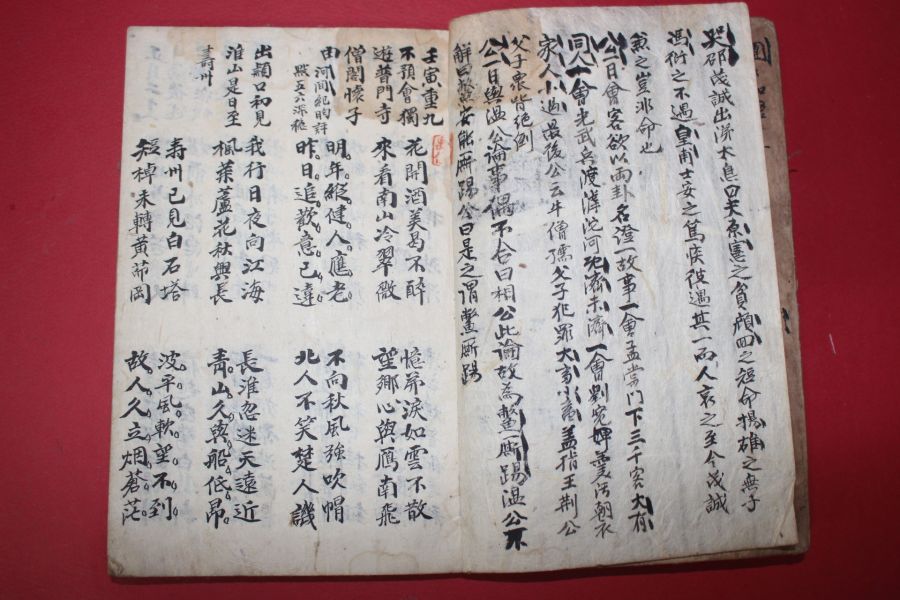 哭邵茂誠出涕太息曰夫原憲之貧顔囬之短命揚雄之無子
馮衍之不遇皇甫士安之篤疾彼遇其一而人哀之至今茂誠
兼之豈非命也
公一日會客欲以兩卦名證一故事一會孟嘗門下三千客大有
同人一會光武兵渡滹沱河旣濟未濟一會劉寛婢羹汚朝衣
家人小過最後公云牛僧孺父子犯罪大畜小畜盖指王荆公
父子衆皆絶倒
公一日與溫公論事偶不合曰相公此論故為鱉厮踢溫公不
觧曰鱉安能厮踢公曰是之謂鱉厮踢
壬寅重九
不預會獨
遊普門寺
僧閣懷子
由
河間紀昀評
點五六深穩
花開酒美曷不醉
來看南山冷翠微
憶弟淚如雲不散
望鄉心與鴈南飛
明年縱健人應老
昨日追歡意已違
不向秋風強吹帽
北人不笑楚人譏
出頴口初見
淮山是日至
壽州
我行日夜向江海
楓葉蘆花秋興長
長淮忽迷天遠近
靑山久與船低昂
壽州已見白石塔
短棹未轉黃茆岡
波平風軟望不到
故人久立烟蒼茫